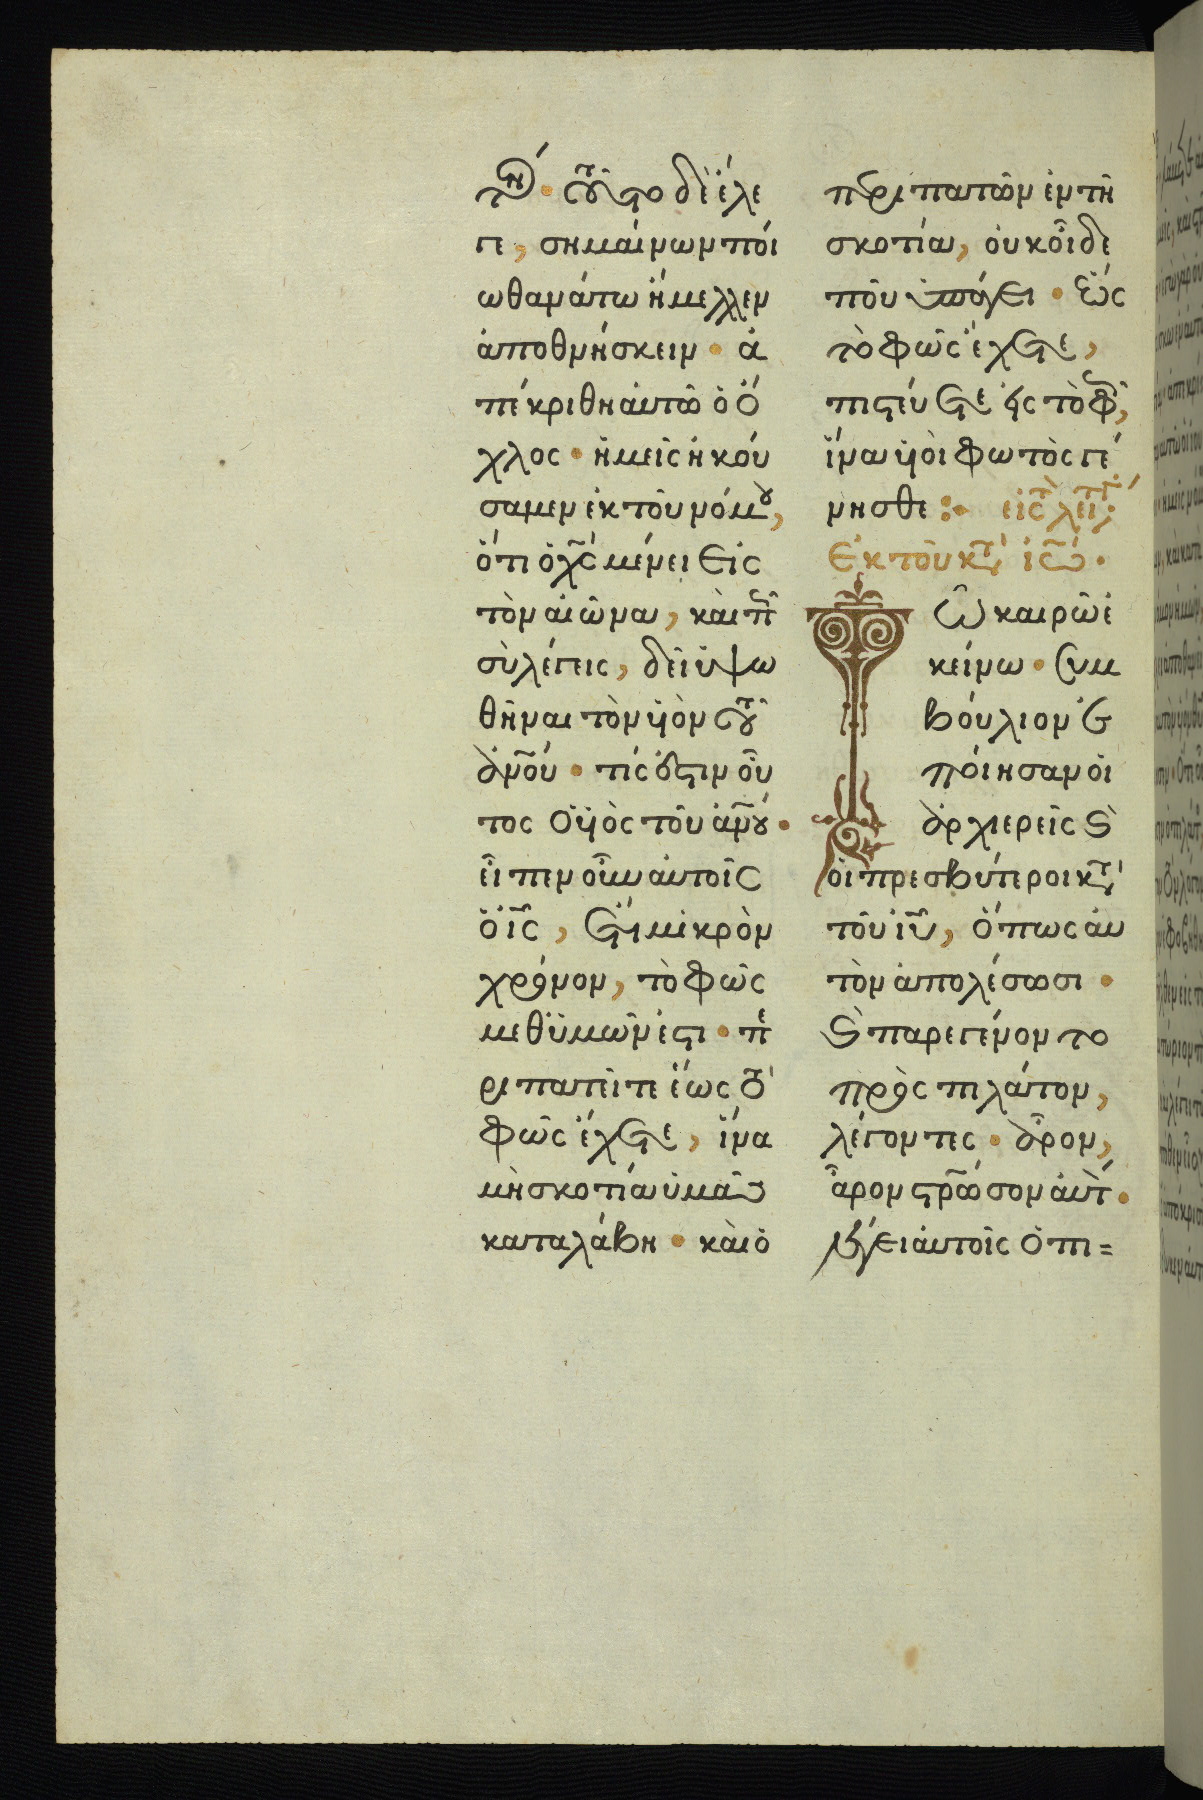 τὴν · τοῦτο δὲ ἔλε
γε, σημαίνων ποί
ω θανάτω ἤμελλεν
ἀποθνήσκειν · ἀ
πεκρίθη αὐτῶ ὁ ὄ
χλος · ἡμεῖς ἠκού
σαμεν ἐκ τοῦ νόμου,
ὅτι ὁ χς μένει εἰς
τὸν αἰῶνα, καὶ πῶς
σὺ λέγεις, δεῖ ὑψω
θῆναι τὸν υἱὸν τοῦ
ἀνου · τίς ἐστιν οὗ
τος ὁ υἱὸς τοῦ ἀνου ·
εἶπεν οὖν αὐτοῖς
ὁ ις, ἔτι μικρὸν
χρόνον, τὸ φῶς
μεθ ὑμῶν ἐστι · πε
ριπατεῖτε ἕως τὸ
φῶς ἔχετε, ἵνα
μὴ σκοτία ὑμᾶς
καταλάβη · καὶ ὁ
περιπατῶν ἐν τῆ
σκοτία, οὐκ οἶδε
ποῦ ὑπάγει · ἕως
τὸ φῶς ἔχετε,
πιστεύετε εἰς τὸ φῶς,
ἵνα υἱοὶ φωτὸς γέ
νησθε :
Ἐκ τοῦ κτ ἰω ·
Τῶ καιρῶ ἐ
κείνω · συμ
βούλιον ἐ
ποίησαν οἱ
ἀρχιερεῖς καὶ
οἱ πρεσβύτεροι κτ
τοῦ ιυ, ὅπως αὐ
τὸν ἀπολέσωσι ·
καὶ παρεγένοντο
πρὸς πιλάτον,
λέγοντες · ἆρον,
ἆρον στρωσον αὐτ ·
λέγει αὐτοῖς ὁ πι=